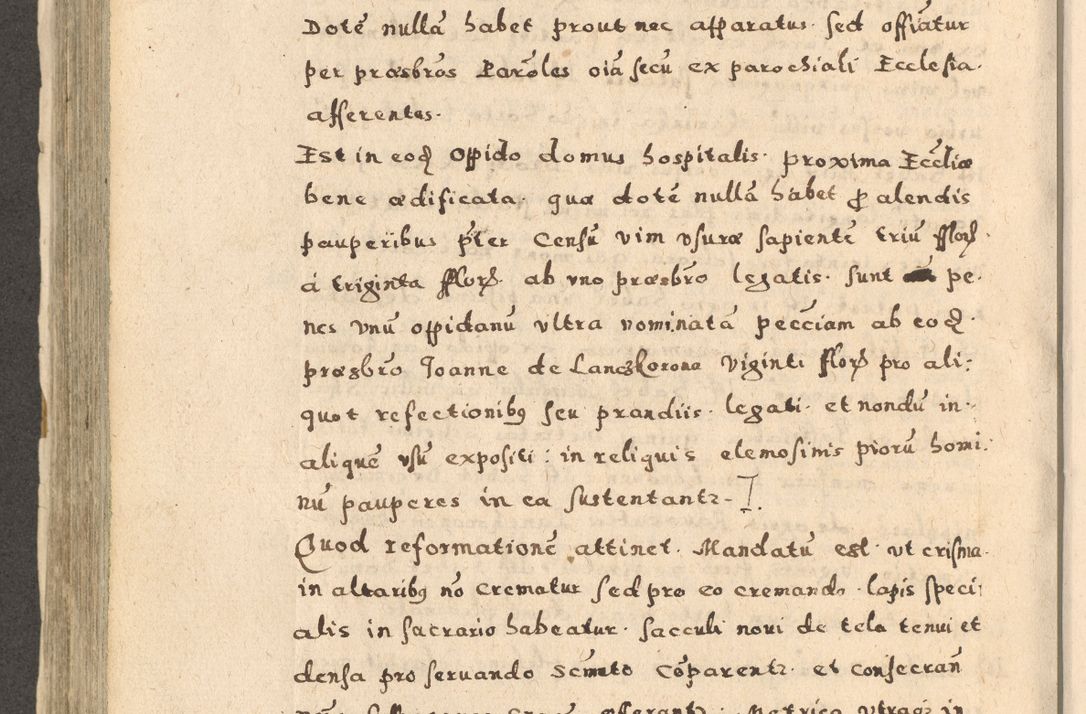 Dotē nullā habet prout nec apparatus. sed offiātur
per præsbr̄os Parōles oīa secū ex parochiali Ecclesia.
afferentes.
Est in eod̄ Oppido domus hospitalis. proxima Ecc̄liæ
bene ædificata. quæ dotē nullā habet ꝓ alendis
pauperibus p̄ter Censū vim vsuræ sapientē triū fflor̄.
á triginta fflor̄. ab vno præsbr̄o legatis. sunt pe.
nes vnū oppidanū vltra nominatā pecc̄iam ab eod̄.
præsbr̄o Joanne de Lanczkorona viginti fflor̄ pro ali:
quot refectionibꝫ seu prandiis. legati. et nondū in.
aliquē vsū expositi: in reliquis elemosinis piorū homi.
nū pauperes in ea sustentantr-
Quod reformationē attinet. Mandatū est. vt crisma.
in altaribꝫ nō crematur sed pro eo cremando. lapis speci
alis in sacrario habeatur. sacculi noui de tela tenui et
densa pro seruando Scm̄to Cōparentr. et consecran̄